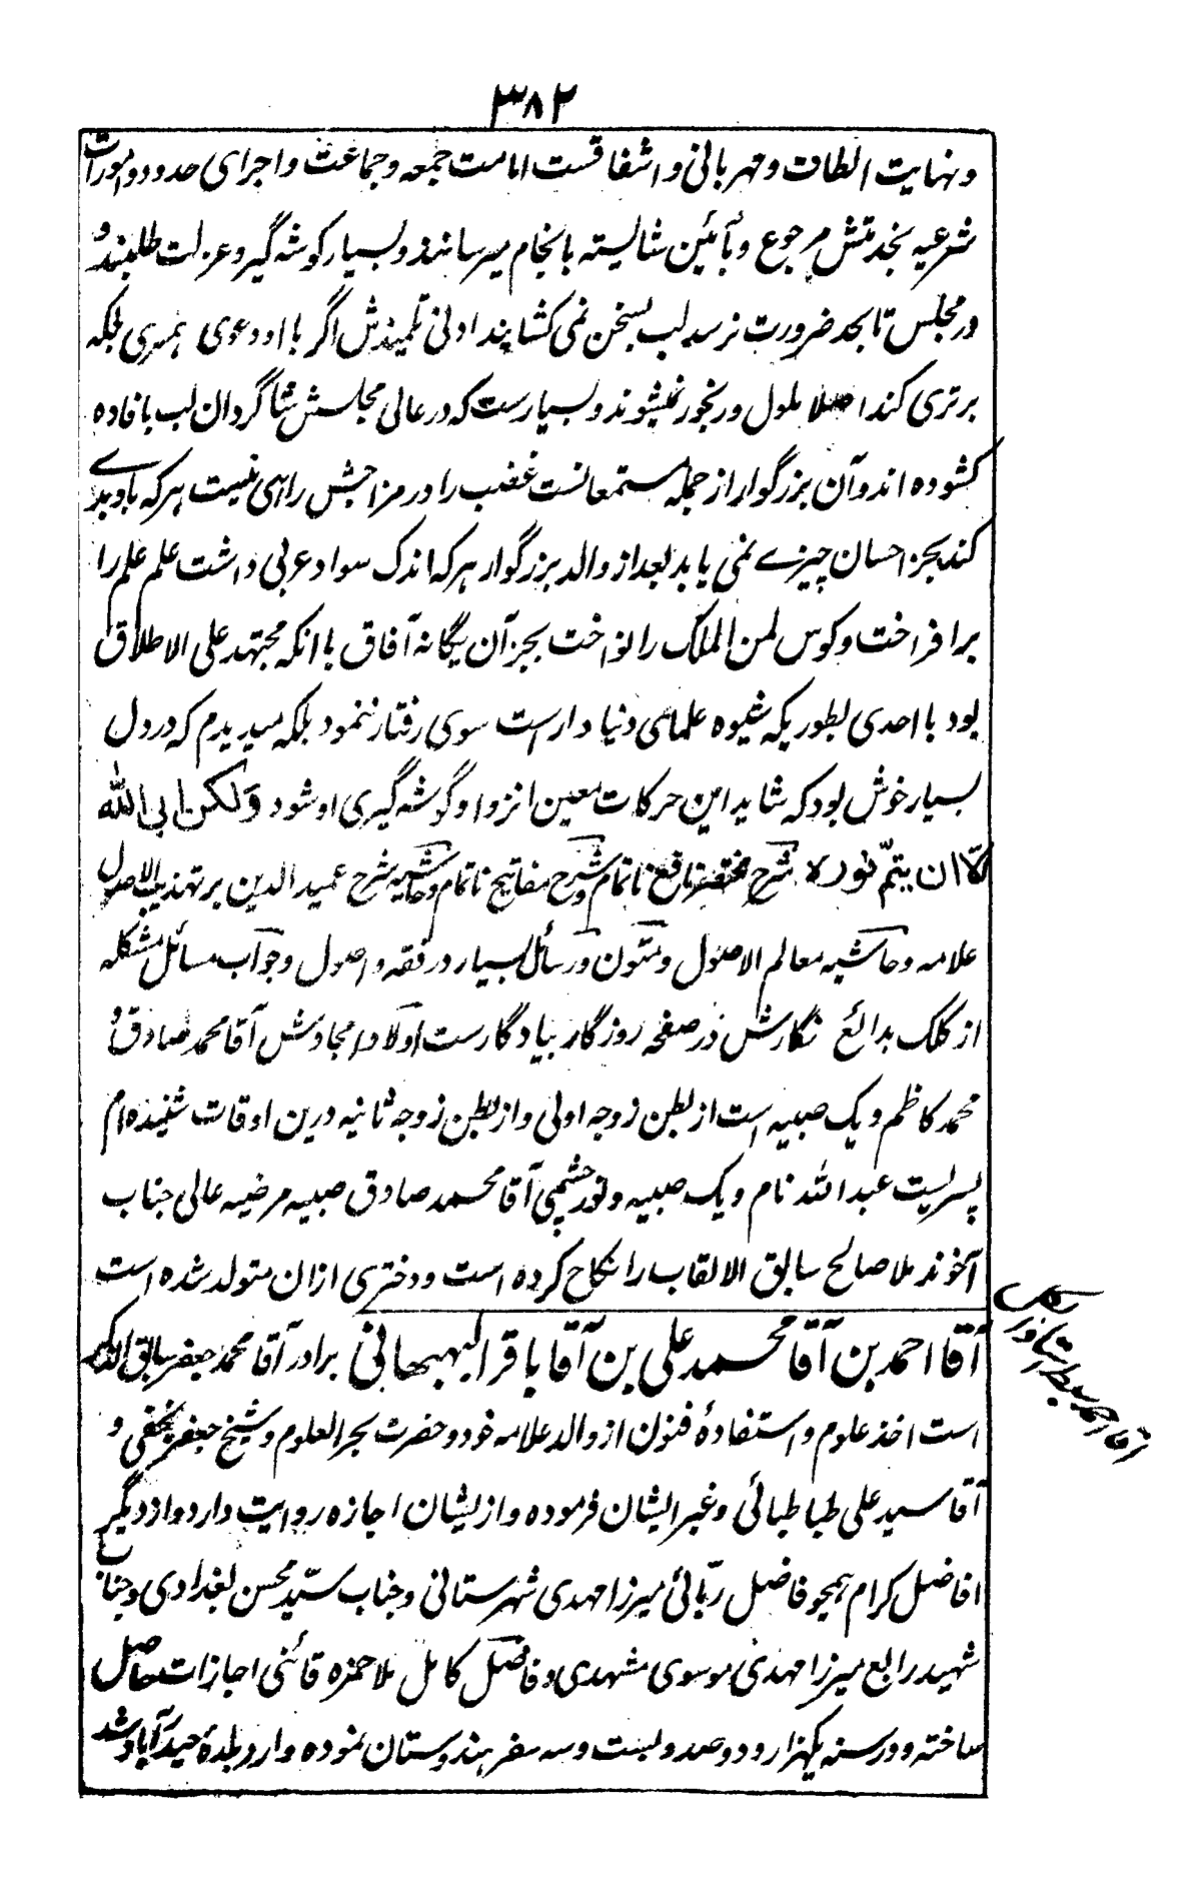 ۳۸۲
ونهایت الطاف ومهربانی واشفاقست امامت جمعه وجماعت واجرای حدود وامورات
شرعیه بخدمتش مرجوع وبآئین شایسته بانجام میرسانند وبسیار گوشه گیر وعزلت طلبند و
در مجلس تا بحد ضرورت نرسد لب بسخن نمی کشایند ادنی تلمیذش اگر با او دعوی همسری بلکه
برتری کند اصلا ملول ورنجور نمیشوند وبسیارست که در عالی مجلسش شاگردان لب بافاده
کشوده اند وآن بزرگوار از جمله مستمعانست غضب را در مزاجش راهی نیست هر که باو بدے
کند بجز احسان چیزے نمی یابد بعد از والد بزرگوار هر که اندک سواد عربی داشت علم علم را
برافراخت وکوس لمن الملک را نواخت بجز آن یگانه آفاق با انکه مجتهد علی الاطلاق
بود با احدی بطوریکه شیوه علمای دنیا دار است سوی رفتار ننمود بلکه میدیدم که در دل
بسیار خوش بود که شاید این حرکات معین انزوا وگوشه گیری او شود ولکن ابی الله
الا ان یتمّ نوره شرح مختصر نافع ناتمام وشرح مفاتیح ناتمام وحاشیه شرح عمید الدین بر تهذیب الاصول
علامه وحاشیه معالم الاصول ومتون ورسائل بسیار در فقه واصول وجواب مسائل مشکله
از کلک بدائع نگارش در صفحه روزگار بیادگارست اولاد امجادش آقا محمد صادق و
محمد کاظم ویک صبیه است از بطن زوجه اولی واز بطن زوجه ثانیه درین اوقات شنیده ام
پسریست عبد الله نام ویک صبیه ونور چشمی آقا محمد صادق صبیه مرضیه عالی جناب
آخوند ملا صالح سابق الالقاب را نکاح کرده است ودختری ازان متولد شده است
آقا احمد بن آقا محمد علی بن آقا باقر البهبهانی برادر آقا محمد جعفر سابق الذکر
است اخذ علوم واستفادهٔ فنون از والد علامه خود وحضرت بحر العلوم وشیخ جعفر نجفی و
آقا سید علی طباطبائی وغیر ایشان فرموده واز ایشان اجازه روایت دارد واز دیگر
افاضل کرام همچو فاضل ربّانی میرزا مهدی شهرستانی وجناب سیّد محسن بغدادی وجناب
شهید رابع میرزا مهدی موسوی مشهدی وفاضل کامل ملا حمزه قائنی اجازات حاصل
ساخته ودر سنه یکهزار ودوصد وبست وسه سفر هندوستان نموده وارد بلدهٔ حیدرآباد شد
آقا احمد سبط استاد